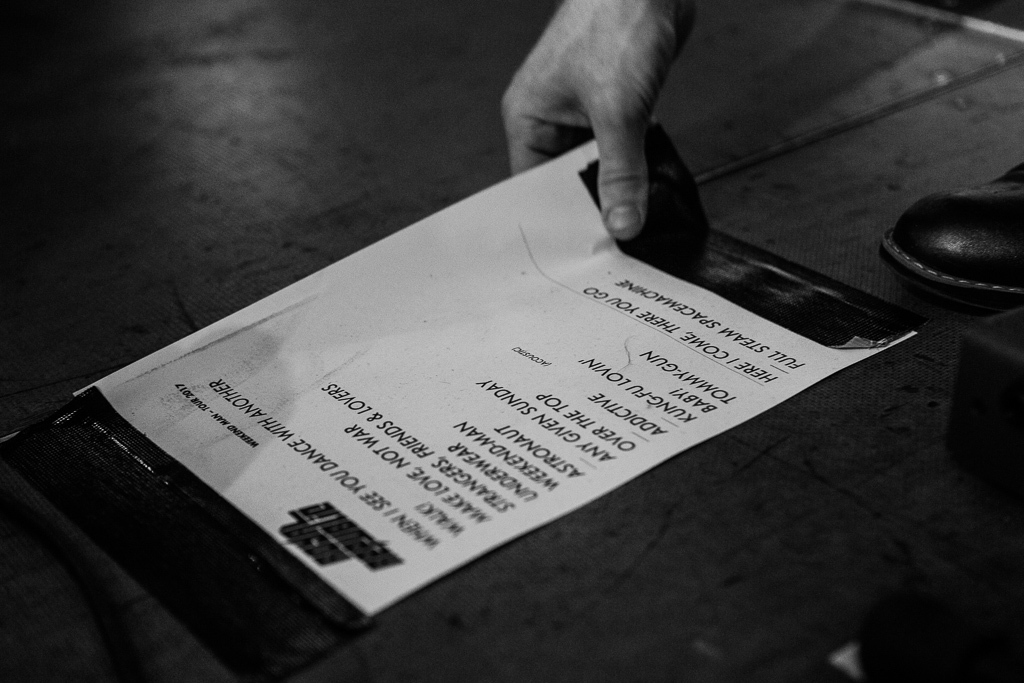 WEEKEND MAN - TOUR 2017
WHEN I SEE YOU DANCE WITH ANOTHER
WALK!
MAKE LOVE, NOT WAR
STRANGERS, FRIENDS & LOVERS
UNDERWEAR
WEEKEND-MAN
ASTRONAUT
ANY GIVEN SUNDAY
OVER THE TOP
ADDICTIVE (ACOUSTIC)
KUNG-FU LOVIN'
BABY!
TOMMY-GUN
HERE I COME, THERE YOU GO
FULL STEAM SPACEMACHINE